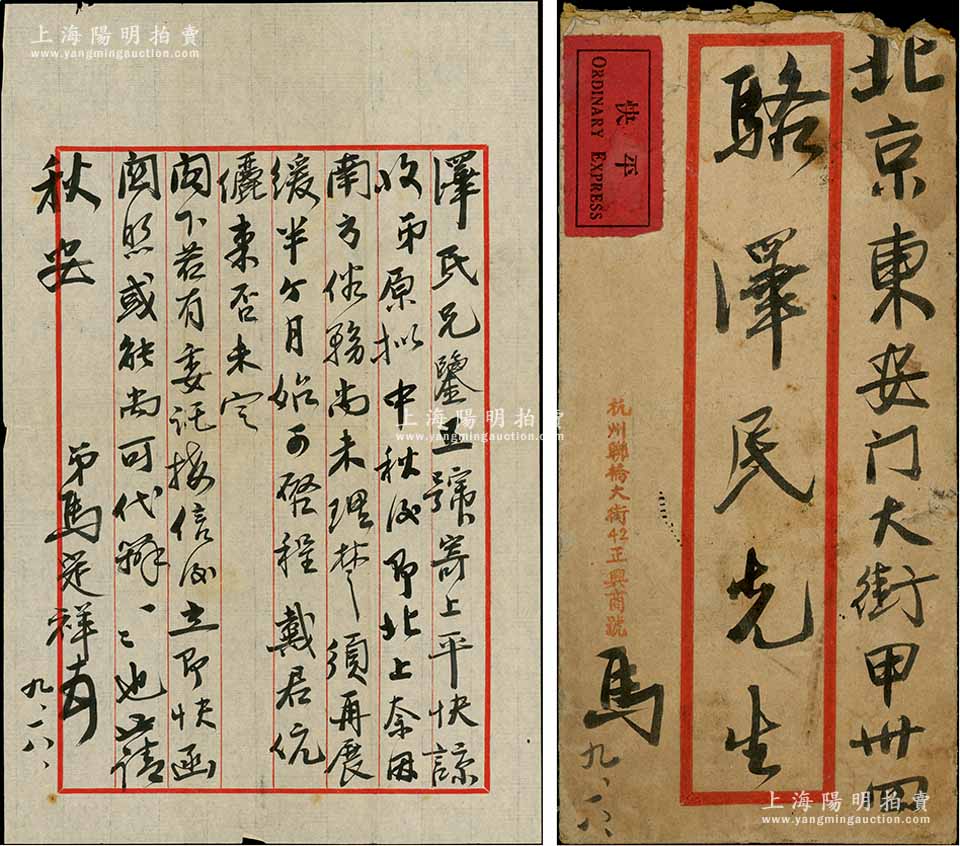 澤民兄鑒五號寄上平快諒
收弟原拟中秋後即北上奈因
南方俗務尚未理楚須再展
緩半个月始可啓程戴君伉
儷東否未定
閣下若有委託接信後立即快函
関照或能尚可代辦一二也此請
秋安
弟馬定祥
九、一八、
北京東安门大街甲卅四
駱澤民先生
杭州聯橋大街42正興商號
馬
九、一八、
快平
ORDINARY EXPRESS
上海陽明拍賣
www.yangmingauction.com
上海陽明拍賣
www.yangmingauction.com
上海陽明拍賣
www.yangmingauction.com